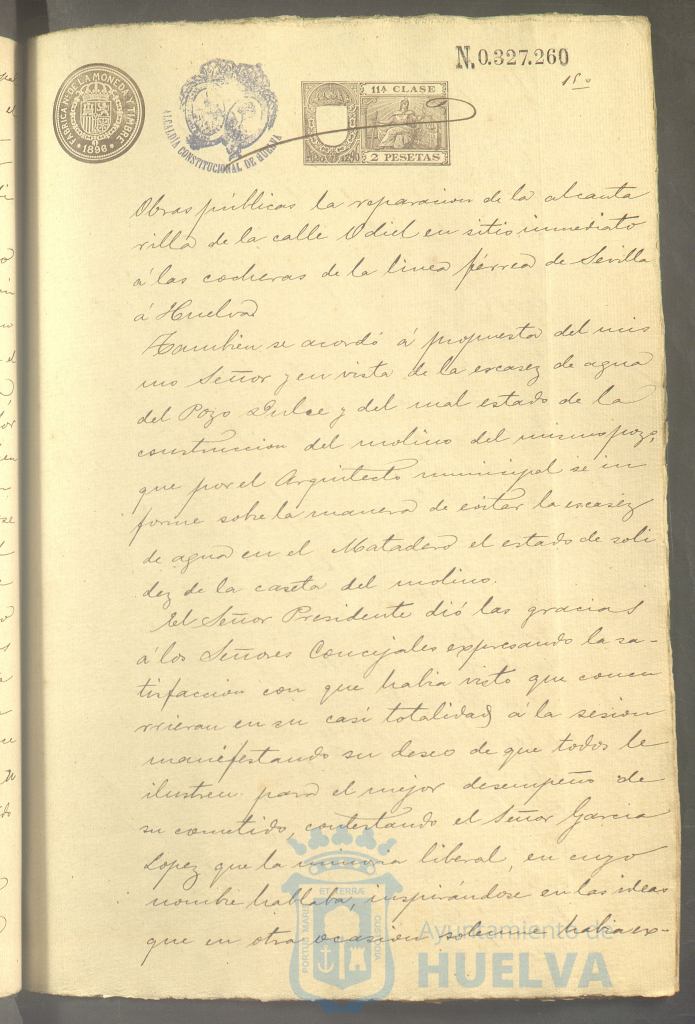 N.0.327.260
15º
FABRICA Nª. DE LA MONEDA Y TIMBRE
1896
ALCALDÍA CONSTITUCIONAL DE HUELVA
11ª CLASE
2 PESETAS
Obras públicas la reparacion de la alcanta
rilla de la calle Odiel en sitio inmediato
á las cocheras de la linea férrea de Sevilla
á Huelva
Tambien se acordó á propuesta del mis
mo Señor y en vista de la escasez de agua
del Pozo Dulce y del mal estado de la
construccion del molino del mismo pozo,
que por el Arquitecto municipal se in
forme sobre la manera de evitar la escaséz
de agua en el Matadero el estado de soli
dez de la caseta del molino.
El Señor Presidente dió las gracias
á los Señores Concejales expresando la sa-
tisfaccion con que habia visto que concu
rrieran en su casi totalidad á la sesion
manifestando su deseo de que todos le
ilustren para el mejor desempeño de
su cometido, contestando el Señor Garcia
Lopez que la minoria liberal, en cuyo
nombre hablaba, inspirándose en las ideas
que en otra ocasion solemne habia ex-
PORTUS MARIS ET TERRAE CUSTODIA
Ayuntamiento de
HUELVA